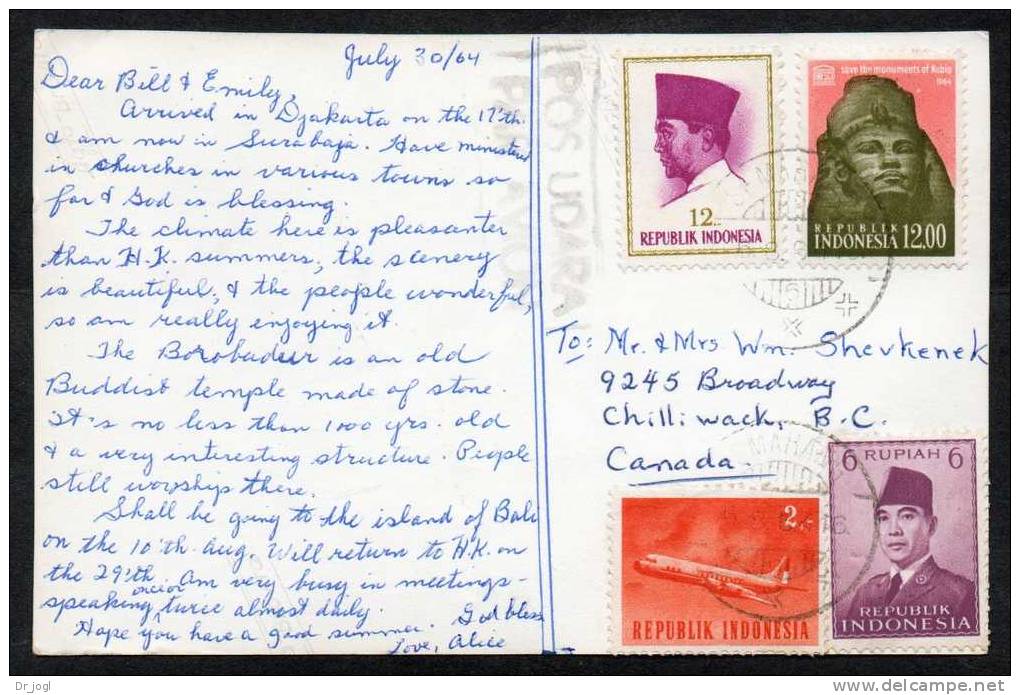 July 30/64
Dear Bill & Emily,
Arrived in Djakarta on the 17'th.
& am now in Surabaja. Have ministered
in churches in various towns so
far & God is blessing.
The climate here is pleasanter
than H.K. summers, the scenery
is beautiful, & the people wonderful,
so am really enjoying it.
The Borobadur is an old
Buddist temple made of stone.
It's no less than 1000 yrs. old
& a very interesting structure. People
still worship there.
Shall be going to the island of Bali
on the 10'th Aug. Will return to H.K. on
the 29'th. Am very busy in meetings -
speaking once or twice almost daily.
Hope you have a good summer. God bless
Love, Alice
POS UDARA
PAR AVION
12.-
REPUBLIK INDONESIA
save the monuments of Nubia
1964
REPUBLIK
INDONESIA 12,00
To: Mr. & Mrs Wm. Shevkenek
9245 Broadway
Chilliwack, B.C.
Canada
2.-
REPUBLIK INDONESIA
6 RUPIAH 6
REPUBLIK
INDONESIA
Dr jogl
delcampe.net